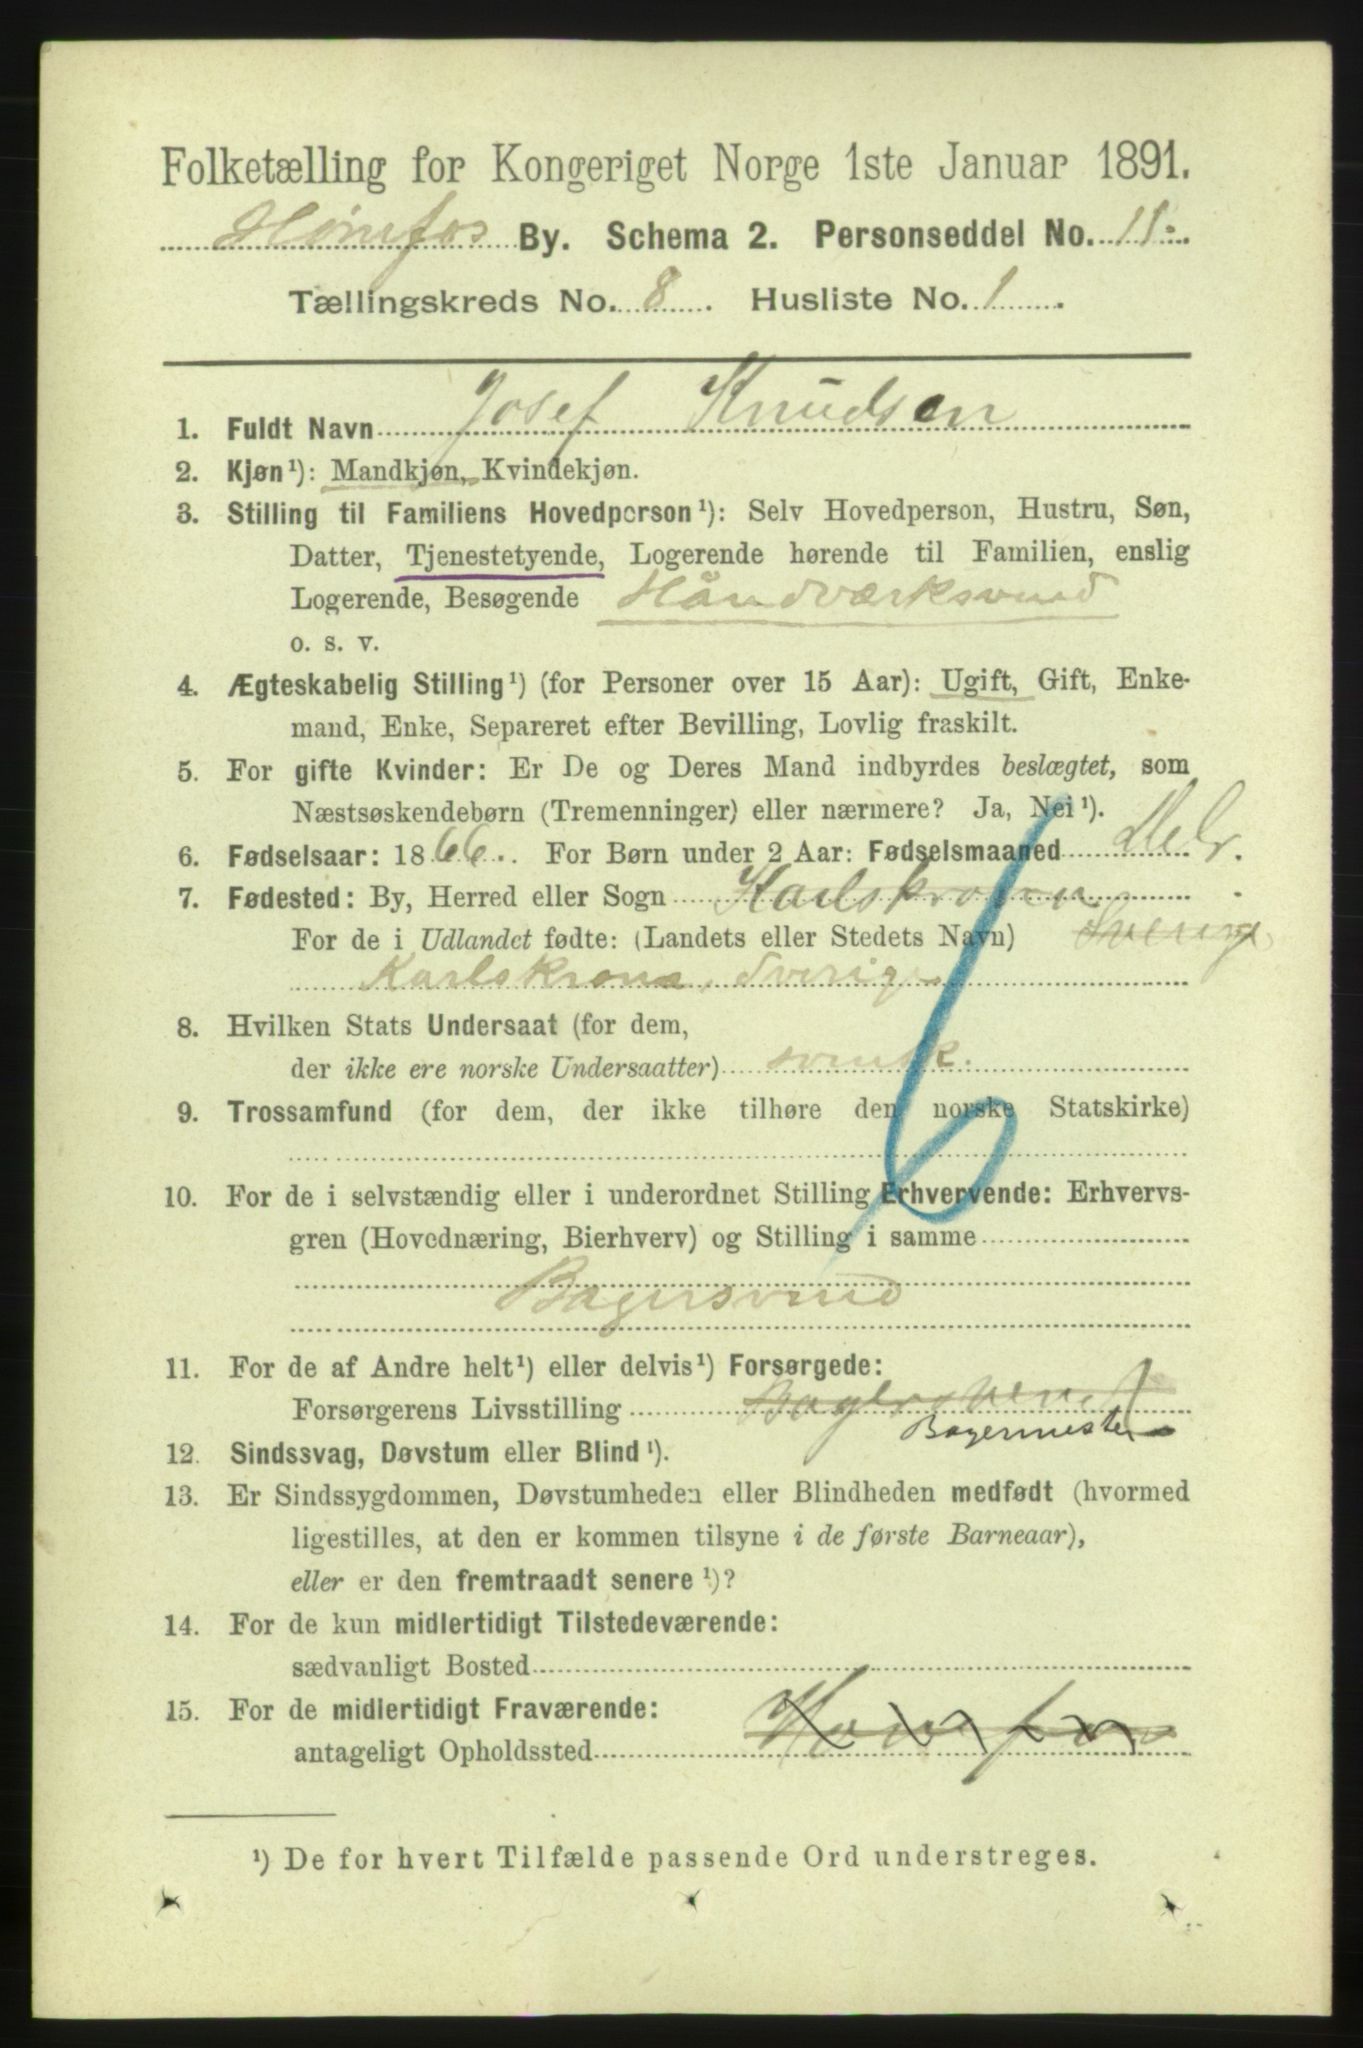 Folketælling for Kongeriget Norge 1ste Januar 1891.
Hønefos By. Schema 2. Personseddel No. 11.
Tællingskreds No. 8. Husliste No. 1.
1. Fuldt Navn Josef Knudsen
2. Kjøn¹): Mandkjøn, Kvindekjøn.
3. Stilling til Familiens Hovedperson¹): Selv Hovedperson, Hustru, Søn,
Datter, Tjenestetyende, Logerende hørende til Familien, enslig
Logerende, Besøgende Håndværksvend
o. s. v.
4. Ægteskabelig Stilling¹) (for Personer over 15 Aar): Ugift, Gift, Enke-
mand, Enke, Separeret efter Bevilling, Lovlig fraskilt.
5. For gifte Kvinder: Er De og Deres Mand indbyrdes beslægtet, som
Næstsøskendebørn (Tremenninger) eller nærmere? Ja, Nei¹).
6. Fødselsaar: 1866. For Børn under 2 Aar: Fødselsmaaned
7. Fødested: By, Herred eller Sogn Karlskrona
For de i Udlandet fødte: (Landets eller Stedets Navn) Sverige
Karlskrona, Sverige
8. Hvilken Stats Undersaat (for dem,
der ikke ere norske Undersaatter) svensk.
9. Trossamfund (for dem, der ikke tilhøre den norske Statskirke)
10. For de i selvstændig eller i underordnet Stilling Erhvervende: Erhvervs-
gren (Hovednæring, Bierhverv) og Stilling i samme
Bagersvend
11. For de af Andre helt¹) eller delvis¹) Forsørgede:
Forsørgerens Livsstilling Bagersvend
Bagermester
12. Sindssvag, Døvstum eller Blind¹).
13. Er Sindssygdommen, Døvstumheden eller Blindheden medfødt (hvormed
ligestilles, at den er kommen tilsyne i de første Barneaar),
eller er den fremtraadt senere¹)?
14. For de kun midlertidigt Tilstedeværende:
sædvanligt Bosted
15. For de midlertidigt Fraværende:
antageligt Opholdssted Hønefos
¹) De for hvert Tilfælde passende Ord understreges.